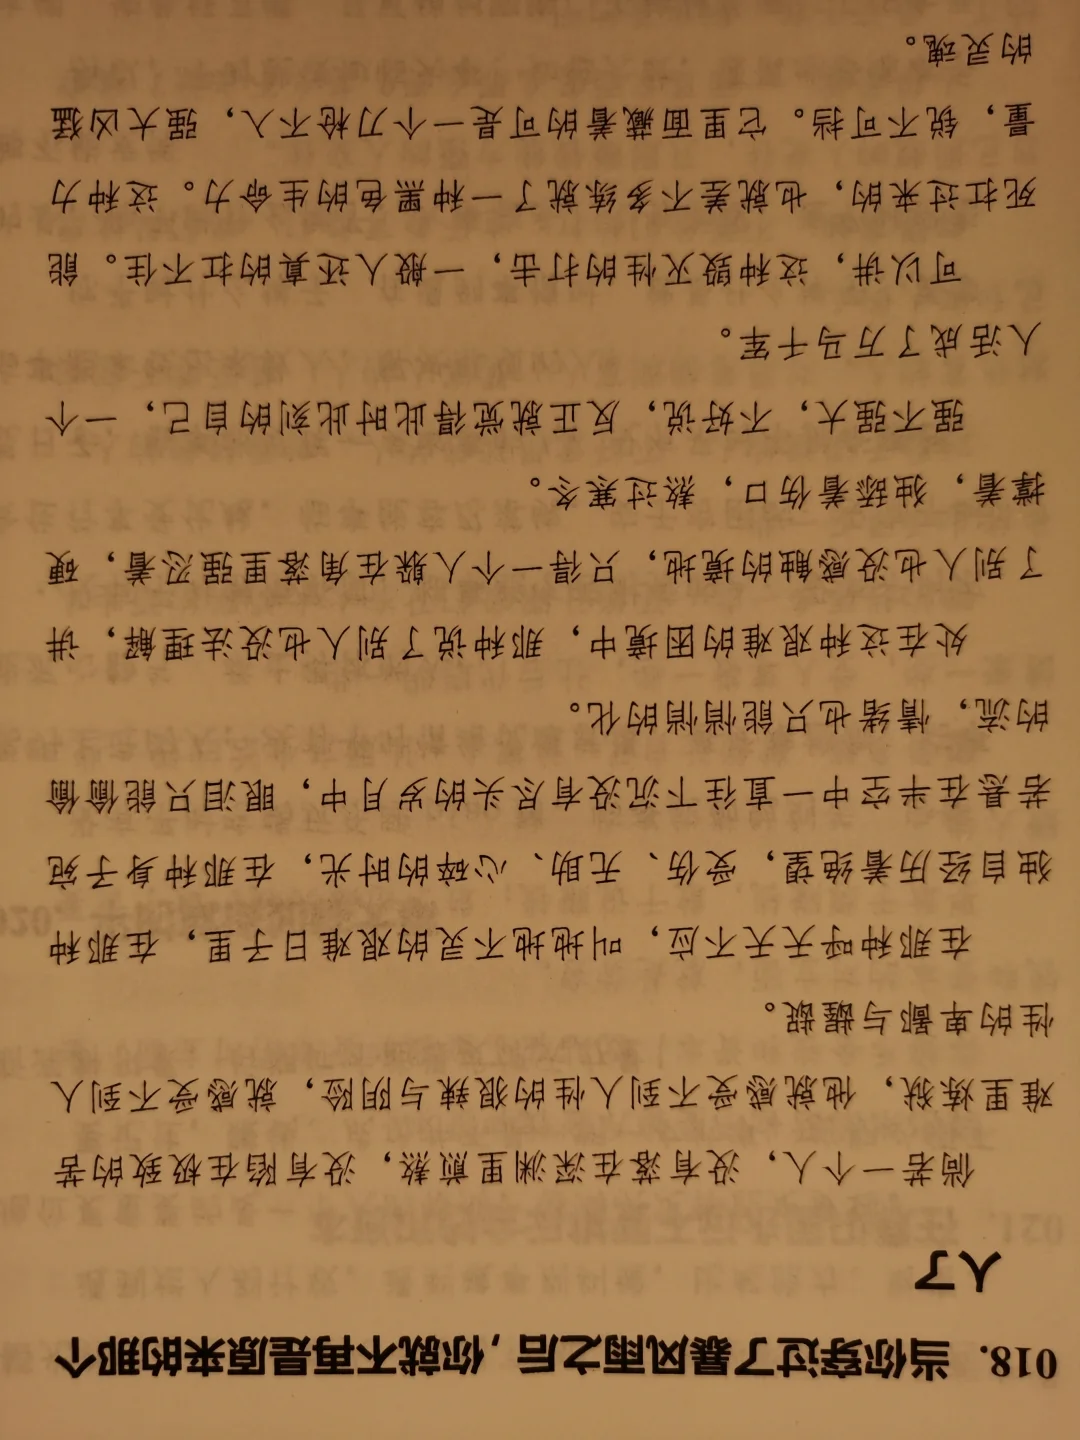 018. 当你穿过了暴风雨之后，你就不再是原来的那个
人了
倘若一个人，没有落在深渊里煎熬，没有陷在极致的苦
难里炼狱，他就感受不到人性的狠辣与阴险，就感受不到人
性的卑鄙与龌龊。
在那种呼天天不应，叫地地不灵的艰难日子里，在那种
独自经历着绝望，受伤、无助、心碎的时光，在那种身子宛
若悬在半空中一直往下沉没有尽头的岁月中，眼泪只能偷偷
的流，情绪也只能悄悄的化。
处在这种艰难的困境中，那种说了别人也没法理解，讲
了别人也没感触的境地，只得一个人躲在角落里强忍着，硬
撑着，独舔着伤口，熬过寒冬。
强不强大，不好说，反正就觉得此时此刻的自己，一个
人活成了万马千军。
可以讲，这种毁灭性的打击，一般人还真的扛不住。能
死扛过来的，也就差不多练就了一种黑色的生命力。这种力
量，锐不可挡。它里面藏着的可是一个刀枪不入，强大凶猛
的灵魂。